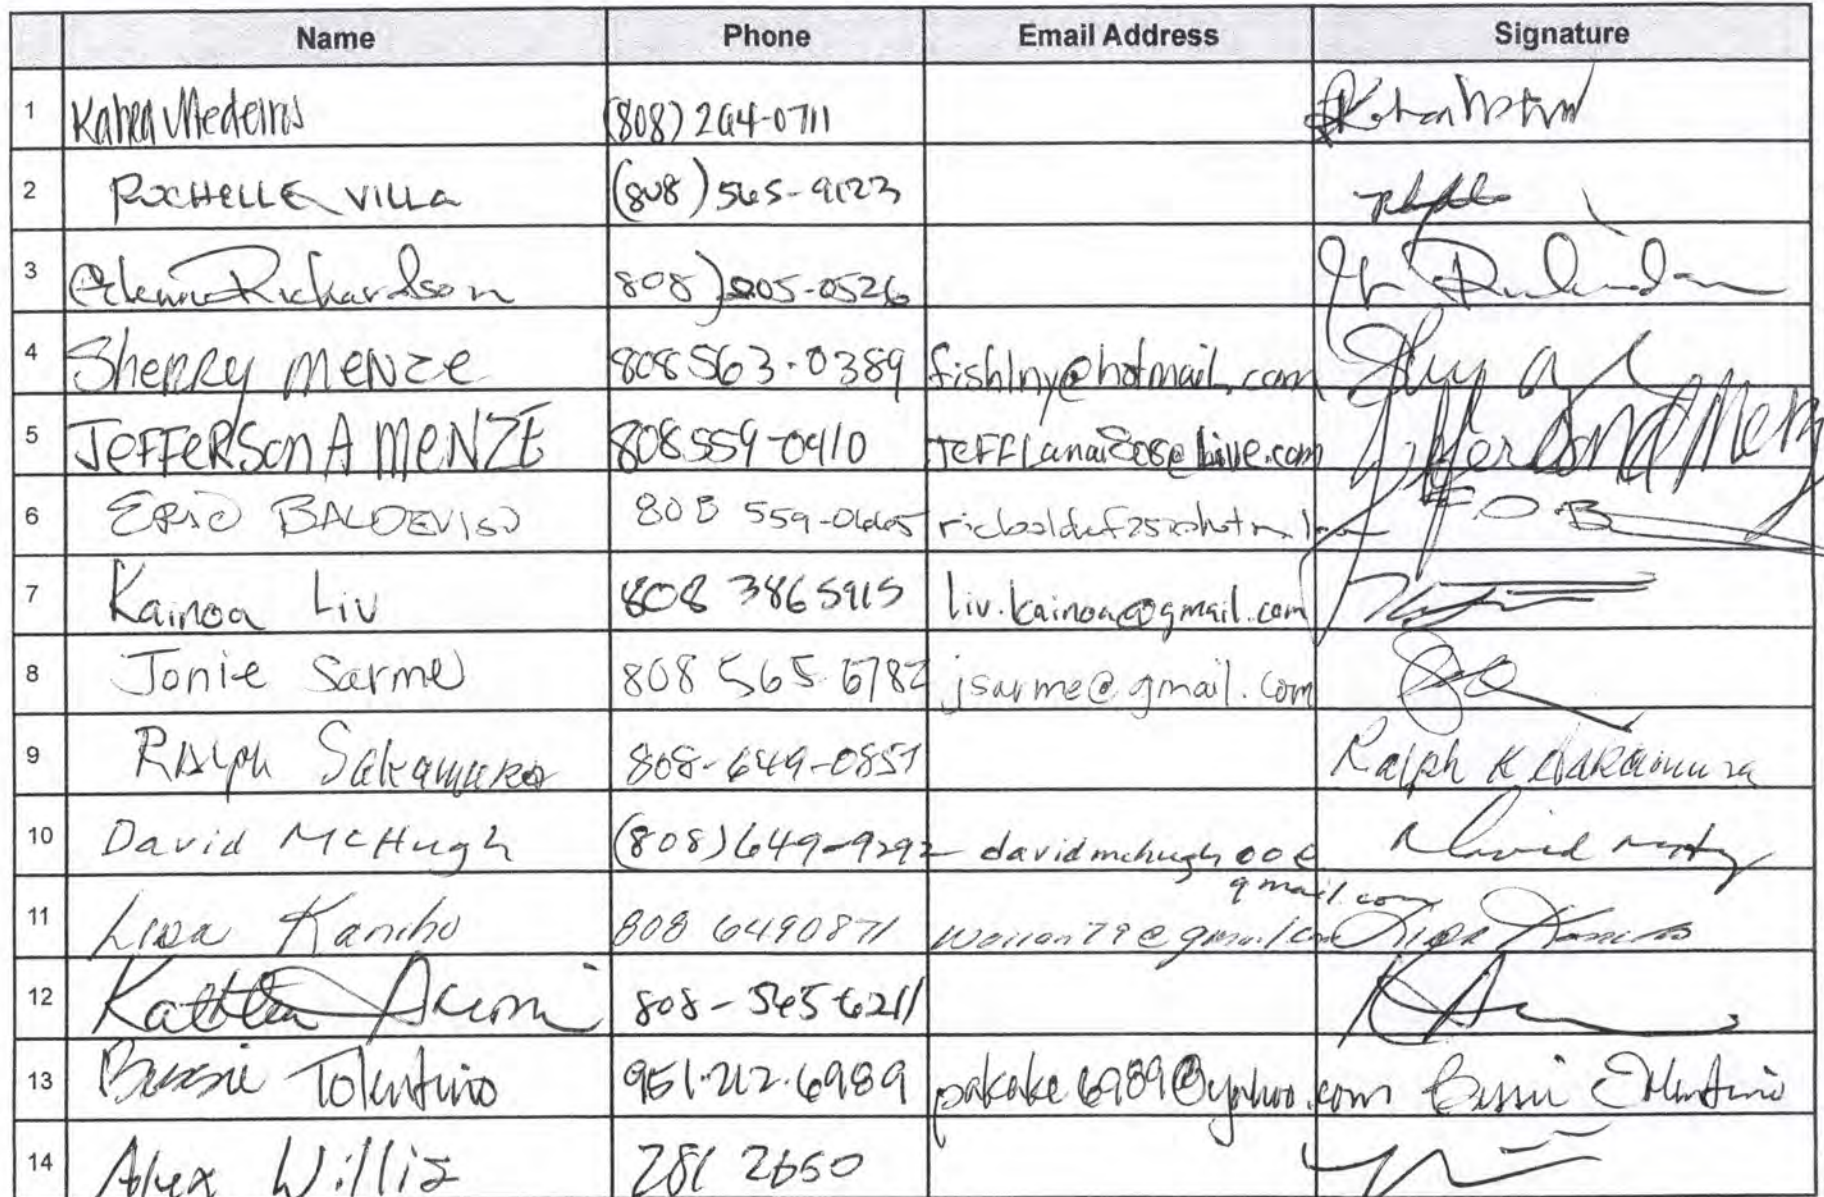 Name Phone Email Address Signature
1 Kahea Medeiros (808) 264-0711
2 ROCHELLE VILLA (808) 565-9123
3 Richardson 808)
4 Sherry MENZE 808 563-0389 fishlny@hotmail.com
5 JEFFERSON A MENZE 808 559-0410 JEFFLanai808@live.com Jefferson A Menz
6 ERIC BALDEVISO 808 559-0665 E.O.B
7 Kainoa Liv 808 3865915 liv.kainoa@gmail.com
8 Jonie Sarme 808 565 6782 jsarme@gmail.com
9 Ralph Sakamura 808-649-0851 Ralph K Sakamura
10 David McHugh (808) 649-9292 davidmchugh00@ David
gmail.com
11 Lisa Kaniho 808 6490871
12 808-565 6211
13 Bessie Tolentino 951.212.6989 pakake6989@yahoo.com Bessie Tolentino
14 Alex Willis 281 2650